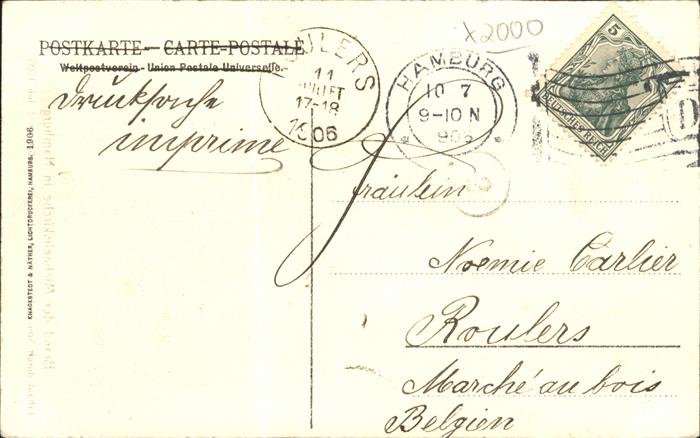 x2000
POSTKARTE - CARTE-POSTALE
Weltpostverein - Union Postale Universelle.
Drucksache
imprime
ROULERS
11
JUILLET
17-18
1906
HAMBURG
10 7
9-10 N
906
5
DEUTSCHES REICH
Fräulein
Noemie Carlier
Roulers
Marché au bois
Belgien
KNACKSTEDT & NÄTHER, LICHTDRUCKEREI, HAMBURG. 1906
Brand der Michaeliskirche in Hamburg